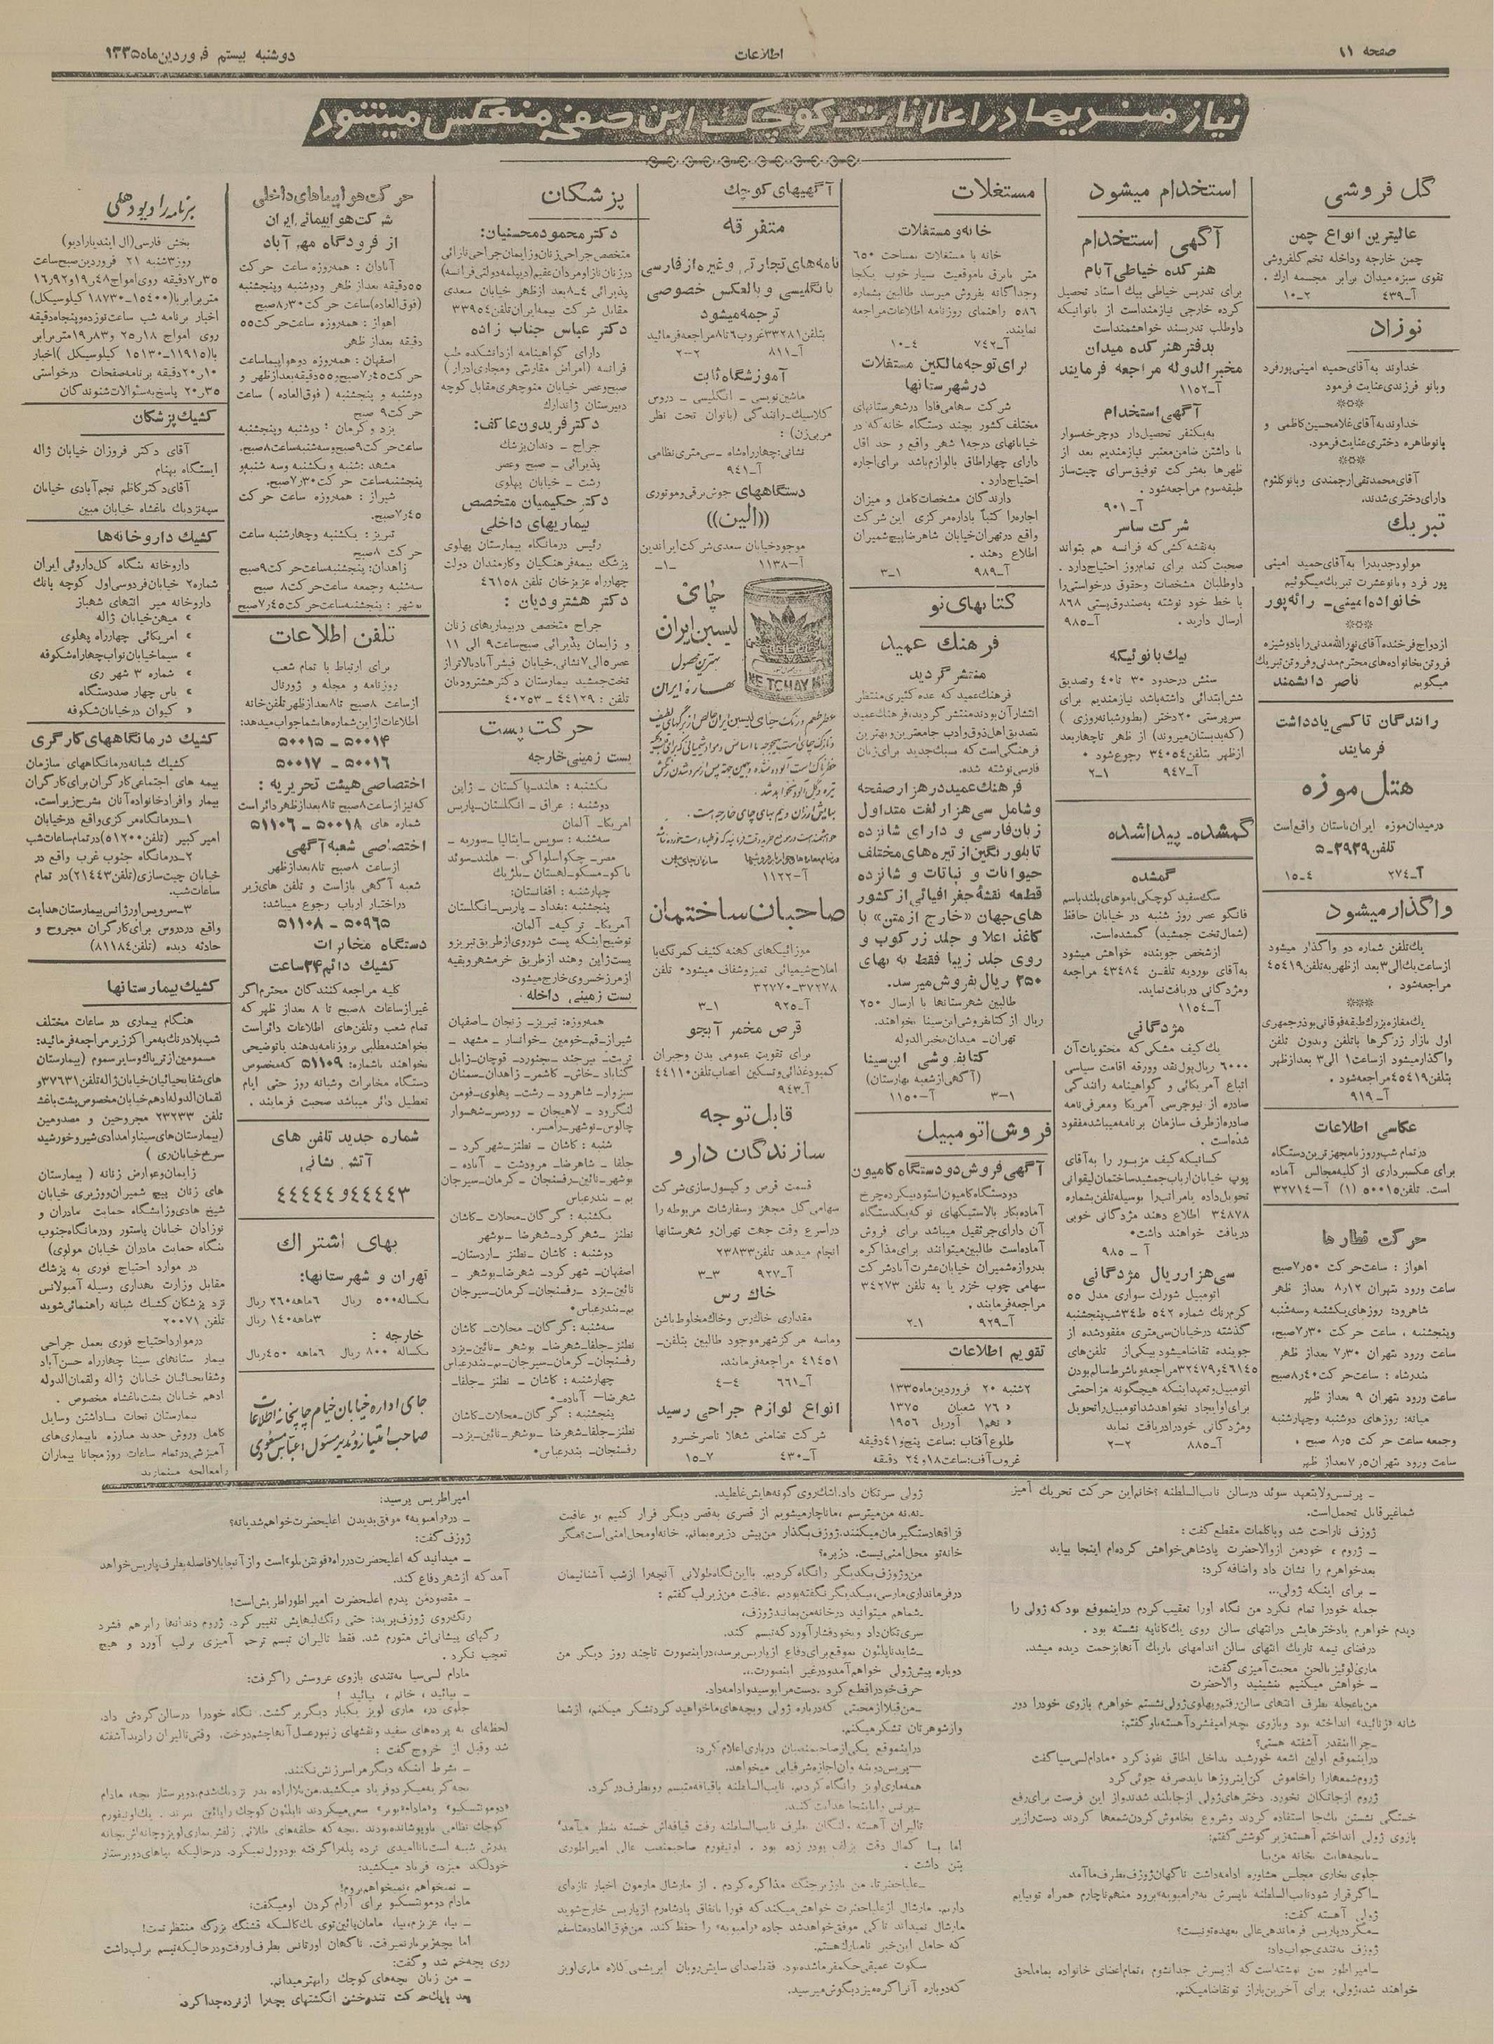 صفحه ۱۱
اطلاعات
دوشنبه بیستم فروردین‌ماه ۱۳۳۵
نیازمندیها در اعلانات کوچک این صفحه منعکس میشود
گل فروشی
عالیترین انواع چمن
چمن خارجه وداخله تخم گلفروشی
تقوی سبزه میدان برابر مجسمه ارک .
آ-۴۳۹ ۲-۱۰
نوزاد
خداوند به آقای حمید امینی پورفرد
وبانو فرزندی عنایت فرمود
خداوند به آقای غلامحسین کاظمی و
بانو طاهره دختری عنایت فرمود.
آقای محمدتقی ارجمندی وبانو کلثوم
دارای دختری شدند.
تبریک
مولود جدید را به آقای حمید امینی
پور فرد وبانو عشرت تبریک میگوئیم
خانواده امینی- رائه پور
ازدواج فرخنده آقای نورالله مدنی را بادوشیزه
فروتن بخانواده های محترم مدنی و فروتن تبریک
میگویم ناصر دانشمند
رانندگان تاکسی یادداشت
فرمایند
هتل موزه
درمیدان موزه ایران باستان واقع است
تلفن ۳۹۳۹-۵
آ-۲۷۴ ۴-۱۵
واگذار میشود
یک تلفن شماره دو واگذار میشود
ازساعت یک الی ۳ بعد ازظهر به تلفن ۴۵۴۱۹
مراجعه شود .
یک مغازه بزرگ طبقه فوقانی بوذرجمهری
اول بازار زرگرها باتلفن وبدون تلفن
واگذار میشود ازساعت ۱ الی ۳ بعدازظهر
بتلفن ۴۵۴۱۹ مراجعه شود .
آ-۹۱۹
عکاسی اطلاعات
درتمام شب وروز بامجهزترین دستگاه
برای عکسبرداری از کلیه مجالس آماده
است. تلفن ۵۰۰۱۵ (۱) آ-۳۲۷۱۴
حرکت قطارها
اهواز : ساعت حرکت ۷٫۵۰ صبح
ساعت ورود تهران ۸٫۱۲ بعداز ظهر
شاهرود: روزهای یکشنبه وسه‌شنبه
وپنجشنبه ، ساعت حرکت ۷٫۳۰ صبح،
ساعت ورود تهران ۷٫۳۰ بعداز ظهر
بندرشاه: ساعت حرکت ۸٫۴۰ صبح
ساعت ورود تهران ۹ بعداز ظهر
میانه: روزهای دوشنبه وچهارشنبه
وجمعه ساعت حرکت ۸٫۵ صبح ،
ساعت ورود تهران ۷٫۵ بعداز ظهر
استخدام میشود
آگهی استخدام
هنرکده خیاطی آبام
برای تدریس خیاطی بیک استاد تحصیل
کرده خارجی نیازمنداست از بانوانیکه
داوطلب تدریسند خواهشمنداست
بدفتر هنرکده میدان
مخبرالدوله مراجعه فرمایند
آ-۱۱۵۲
آگهی استخدام
به یکنفر تحصیلدار دوچرخه‌سوار
با داشتن ضامن معتبر نیازمندیم بعد از
ظهرها بشرکت توفیق سرای چیت‌ساز
طبقه سوم مراجعه شود .
آ-۹۰۱
شرکت ساسر
به نقشه‌کشی که فرانسه هم بتواند
صحبت کند برای تمام روز احتیاج دارد .
داوطلبان مشخصات وحقوق درخواستی را
با خط خود نوشته به صندوق پستی ۸۶۸
ارسال دارید . آ-۹۸۵
بیک بانوئیکه
سنش درحدود ۳۰ تا ۴۰ وتصدیق
شش ابتدائی داشته باشد نیازمندیم برای
سرپرستی ۲۰ دختر (بطور شبانه‌روزی )
(که بدبستان میروند) از ظهر تاچهار بعد
ازظهر بتلفن ۳۴۰۵۴ رجوع شود .
آ-۹۴۷ ۱-۲
گمشده- پیدا شده
گمشده
سگ سفید کوچکی باموهای بلند باسم
فانگو عصر روز شنبه در خیابان حافظ
(شمال تخت جمشید) گمشده است.
ازشخص جوینده خواهش میشود
به آقای نوردبه تلفن ۴۳۴۸۴ مراجعه
ومژدگانی دریافت نماید.
آ-۱۱۵۴
مژدگانی
یک کیف مشکی که محتویات آن
۶۰۰۰ ریال پول نقد وورقه اقامت سیاسی
اتباع آمریکائی و گواهینامه رانندگی
صادره از نیوجرسی آمریکا ومعرفی نامه
صادره ازطرف سازمان برنامه میباشد مفقود
شده است .
کسانیکه کیف مزبور را به آقای
پوپ خیابان ارباب جمشید ساختمان لیقوانی
تحویل داده یا مراتب را بوسیله تلفن شماره
۳۴۸۷۸ اطلاع دهند مژدگانی خوبی
دریافت خواهند داشت.
آ - ۹۸۵
سی هزار ریال مژدگانی
اتومبیل شورلت سواری مدل ۵۵
کرم رنگ شماره ۵۴۲ ط ۳۴ شب پنجشنبه
گذشته درخیابان سی‌متری مفقود شده از
جوینده تقاضا میشود بیکی از تلفن‌های
۴۶۱۴۵ و ۳۲۴۷۹ مراجعه و باشرط سالم بودن
اتومبیل وتعهد اینکه هیچگونه مزاحمتی
برای او ایجاد نخواهد شد اتومبیل را تحویل
ومژدگانی خود را دریافت نماید
آ-۸۸۵ ۲-۲
مستغلات
خانه و مستغلات
خانه یا مستغلات بمساحت ۶۵۰
متر بابرق باموقعیت بسیار خوب یکجا
وجداگانه بفروش میرسد طالبین بشماره
۵۸۶ راهنمای روزنامه اطلاعات مراجعه
نمایند.
آ-۷۴۲ ۴-۱۰
برای توجه مالکین مستغلات
درشهرستانها
شرکت سهامی فادا درشهرستانهای
مختلف کشور بچند دستگاه خانه که در
خیابانهای درجه ۱ شهر واقع و حد اقل
دارای چهاراطاق بالوازم باشد برای اجاره
احتیاج دارد.
دارندگان مشخصات کامل و میزان
اجاره را کتباً باداره مرکزی این شرکت
واقع درتهران خیابان شاهرضا پیچ شمیران
اطلاع دهند .
آ-۹۸۹ ۱-۳
کتابهای نو
فرهنگ عمید
منتشر گردید
فرهنگ عمید که عده کثیری منتظر
انتشار آن بودند منتشر گردید، فرهنگ عمید
بتصدیق اهل ذوق وادب جامعترین وبهترین
فرهنگی است که بسبک جدید برای زبان
فارسی نوشته شده.
فرهنگ عمید درهزار صفحه
وشامل سی هزار لغت متداول
زبان فارسی و دارای شانزده
تابلور نگین از تیره های مختلف
حیوانات و نباتات و شانزده
قطعه نقشه جغرافیائی از کشور
های جهان «خارج از متن» با
کاغذ اعلا و جلد زرکوب و
روی جلد زیبا فقط به بهای
۲۵۰ ریال بفروش میرسد.
طالبین شهرستانها با ارسال ۲۵۰
ریال از کتابفروشی ابن سینا بخواهند.
تهران- میدان مخبرالدوله
کتابفروشی ابن سینا
(آگهی ازشعبه بهارستان)
۱-۳ آ-۱۱۵۰
فروش اتومبیل
آگهی فروش دو دستگاه کامیون
دودستگاه کامیون استودبیکر ده چرخ
آماده بکار بالاستیکهای نو که یکدستگاه
آن دارای جرثقیل میباشد برای فروش
آماده است طالبین میتوانند برای مذاکره
بدروازه شمیران خیابان عشرت آباد شرکت
سهامی چوب خزر یا به تلفن ۳۴۲۷۳
مراجعه فرمایند .
آ-۹۲۹ ۱-۲
تقویم اطلاعات
۲شنبه ۲۰ فروردین ماه ۱۳۳۵
« ۲۶ شعبان ۱۳۷۵
« نهم آوریل ۱۹۵۶
طلوع آفتاب : ساعت پنج و ۴۱ دقیقه
غروب آف: ساعت ۱۸ و ۲۴ دقیقه
آگهیهای کوچک
متفرقه
نامه های تجارتی وغیره از فارسی
بانگلیسی و بالعکس خصوصی
ترجمه میشود
بتلفن ۳۳۲۸۱ غروب ۶ تا ۸ مراجعه فرمائید
آ-۸۱۱ ۲-۲
آموزشگاه ثابت
ماشین نویسی - انگلیسی - دروس
کلاسیک- رانندگی (بانوان تحت نظر
مربی زن) :
نشانی: چهارراه شاه - سی متری نظامی
آ-۹۴۱
دستگاههای جوش برقی و موتوری
((الین))
موجود خیابان سعدی شرکت ایراندین
آ-۱۱۳۸ -۱-
چای
لیسین ایران
بهترین محصول
بهاره ایران
NE TCHAY
آ-۱۱۲۲
صاحبان ساختمان
موزائیکهای کهنه کثیف کمرنگ با
املاح شیمیائی تمیز وشفاف میشود. تلفن
۳۷۲۷۸-۳۲۷۷۰
آ-۹۲۵ ۱-۳
قرص مخمر آبجو
برای تقویت عمومی بدن وجبران
کمبود غذائی وتسکین اعصاب تلفن ۴۴۱۱۰
آ-۹۴۳
قابل توجه
سازندگان دارو
قسمت قرص و کپسول سازی شرکت
سهامی کل مجهز وسفارشات مربوطه را
دراسرع وقت جهت تهران و شهرستانها
انجام میدهد تلفن ۲۳۸۳۳
آ-۹۲۷ ۳-۳
خاک رس
مقداری خاک رس وخاک مخلوط باشن
وماسه مرکز شهر موجود طالبین بتلفن-
۴۱۴۵۱ مراجعه فرمایند.
آ-۶۶۱ ۴-۴
انواع لوازم جراحی رسید
شرکت تضامنی شعلا ناصر خسرو
آ-۴۳۰ ۷-۱۵
پزشکان
دکتر محمود محسنیان:
متخصص جراحی زنان وزایمان جراحی نازائی
در زنان نازا ومردان عقیم (دیپلمه دولتی فرانسه)
پذیرائی ۴-۸ بعد ازظهر خیابان سعدی
مقابل شرکت بیمه ایران تلفن ۳۳۹۵۴
دکتر عباس جناب زاده
دارای گواهینامه ازدانشکده طب
فرانسه (امراض مقاربتی ومجاری ادرار )
صبح وعصر خیابان منوچهری مقابل کوچه
دبیرستان ژاندارک
دکتر فریدون عاکف:
جراح - دندان پزشک
پذیرائی - صبح وعصر
رشت - خیابان پهلوی
دکتر حکیمیان متخصص
بیماریهای داخلی
رئیس درمانگاه بیمارستان پهلوی
پزشک بیمه فرهنگیان وکارمندان دولت
چهارراه عزیزخان تلفن ۴۶۱۵۸
دکتر هشترودیان :
جراح متخصص دربیماریهای زنان
و زایمان پذیرائی صبح ساعت ۹ الی ۱۱
عصر ۵ الی ۷ نشانی، خیابان فیشرآباد بالاتر از
تخت جمشید بیمارستان دکتر هشترودیان
تلفن : ۴۴۱۲۹ - ۴۰۲۵۳
حرکت پست
پست زمینی خارجه
یکشنبه : هلند- پاکستان - ژاپن
دوشنبه : عراق - انگلستان- پاریس
امریکا- آلمان
سه‌شنبه : سویس - ایتالیا - سوریه -
مصر- چکواسلواکی- هلند- سوئد
باکو- مسکو- لهستان - بلژیک
چهارشنبه : افغانستان:
پنجشنبه: بغداد - پاریس- انگلستان
آمریکا- ترکیه- آلمان.
توضیح اینکه پست شوروی ازطریق تبریز و
پست ژاپن وهند ازطریق خرمشهر وبقیه
ازمرز خسروی خارج میشود.
پست زمینی داخله .
همه روزه: تبریز- زنجان - اصفهان
شیراز- قم- خومین - خوانسار - مشهد -
تربت- بیرجند - بجنورد- قوچان- زابل
گناباد- خاش- کاشمر- زاهدان- سمنان
سبزوار- شاهرود - رشت- پهلوی- فومن
لنگرود - لاهیجان - رودسر- شهسوار
چالوس- نوشهر- رامسر.
شنبه : کاشان - نطنز- شهرکرد -
جلفا - شاهرضا- مرودشت - آباده -
بوشهر- نائین- رفسنجان - کرمان- سیرجان
بم - بندرعباس
یکشنبه : گرگان- محلات - کاشان
نطنز - شهرکرد- شهرضا- بوشهر
دوشنبه : کاشان - نطنز - اردستان-
اصفهان- شهرکرد- شهرضا- بوشهر -
نائین- یزد - رفسنجان- کرمان- سیرجان
بم- بندرعباس.
سه‌شنبه: گرگان- محلات- کاشان
نطنز- جلفا- شهرضا- بوشهر -نائین- یزد
رفسنجان- کرمان- سیرجان- بم- بندرعباس
چهارشنبه : کاشان - نطنز -جلفا-
شهرضا - آباده.
پنجشنبه : گرگان- محلات- کاشان
نطنز- جلفا- شهرضا - بوشهر- نائین- یزد-
رفسنجان- بندرعباس.
حرکت هواپیماهای داخلی
شرکت هواپیمائی ایران
از فرودگاه مهرآباد
آبادان : همه روزه ساعت حرکت
۵۵ دقیقه بعداز ظهر ودوشنبه وپنجشنبه
(فوق العاده) ساعت حرکت ۸٫۳۰ صبح
اهواز : همه روزه ساعت حرکت ۵۵
دقیقه بعداز ظهر
اصفهان : همه روزه دوهواپیما ساعت
حرکت ۷٫۴۵ صبح و ۵۵ دقیقه بعداز ظهر و
دوشنبه و پنجشنبه ( فوق العاده ) ساعت
حرکت ۹ صبح
یزد و کرمان : دوشنبه وپنجشنبه
ساعت حرکت ۹ صبح وسه شنبه ساعت ۸ صبح.
مشهد: شنبه و یکشنبه وسه شنبه و
پنجشنبه ساعت حرکت ۷٫۳۰ صبح.
شیراز : همه روزه ساعت حرکت
۷٫۴۵ صبح.
تبریز : یکشنبه وچهارشنبه ساعت
حرکت ۸ صبح
زاهدان: پنجشنبه ساعت حرکت ۹ صبح
سه‌شنبه وجمعه ساعت حرکت ۸ صبح
بوشهر : پنجشنبه ساعت حرکت ۷٫۴۵ صبح
تلفن اطلاعات
برای ارتباط با تمام شعب
روزنامه و مجله و ژورنال
ازساعت ۸ صبح تا ۸ بعدازظهر تلفن خانه
اطلاعات از این شماره ها بشما جواب میدهد:
۵۰۰۱۴ - ۵۰۰۱۵
۵۰۰۱۶ - ۵۰۰۱۷
اختصاصی هیئت تحریریه :
که نیز از ساعت ۸ صبح تا ۸ بعداز ظهر دائر است
شماره های ۵۰۰۱۸ - ۵۱۱۰۶
اختصاصی شعبه آگهی
ازساعت ۸ صبح تا ۸ بعدازظهر
شعبه آگهی بازاست و تلفن های زیر
دراختیار ارباب رجوع میباشد:
۵۰۹۶۵ - ۵۱۱۰۸
دستگاه مخابرات
کشیک دائم ۲۴ ساعت
کلیه مراجعه کنندگان محترم اگر
غیر ازساعات ۸ صبح تا ۸ بعداز ظهر که
تمام شعب وتلفن های اطلاعات دائر است
بخواهند مطلبی بروزنامه بدهند یا توضیحی
بخواهند باشماره: ۵۱۱۰۹ که مخصوص
دستگاه مخابرات وشبانه روز حتی ایام
تعطیل دائر میباشد صحبت فرمایند .
شماره جدید تلفن های
آتش نشانی
۴۴۴۴۳ و ۴۴۴۴۴
بهای اشتراک
تهران و شهرستانها:
یکساله ۵۰۰ ریال ۶ماهه ۲۶۰ ریال
۳ماهه ۱۴۰ ریال
خارجه :
یکساله ۸۰۰ ریال ۶ماهه ۴۵۰ ریال
جای اداره خیابان خیام چاپخانه اطلاعات
صاحب امتیاز و مدیر مسئول : عباس مسعودی
برنامه رادیو دهلی
بخش فارسی (آل ایندیا رادیو)
روز ۳شنبه ۲۱ فروردین صبح ساعت
۷٫۳۵ دقیقه روی امواج ۱۹٫۴۸ و ۱۶٫۹۲
متر برابر با (۱۵۴۰۰-۱۸۷۳۰ کیلوسیکل)
اخبار برنامه شب ساعت نوزده و پنجاه دقیقه
روی امواج ۲۵٫۱۸ و ۱۹٫۸۳ متر برابر
با (۱۱۹۱۵-۱۵۱۳۰ کیلوسیکل ) اخبار
۲۰٫۱۰ دقیقه برنامه صفحات درخواستی
۲۰٫۳۵ پاسخ به سئوالات شنوندگان
کشیک پزشکان
آقای دکتر فروزان خیابان ژاله
ایستگاه بهنام
آقای دکتر کاظم نجم آبادی خیابان
سپه نزدیک باغشاه خیابان مبین
کشیک داروخانه ها
داروخانه بنگاه کل داروئی ایران
شماره ۲ خیابان فردوسی اول کوچه بانک
داروخانه میر انتهای شهباز
« میهن خیابان ژاله
« امریکائی چهارراه پهلوی
« سیما خیابان نواب چهارراه شکوفه
« شماره ۳ شهر ری
« یاس چهار صد دستگاه
« کیوان درخیابان شکوفه
کشیک درمانگاههای کارگری
کشیک شبانه درمانگاههای سازمان
بیمه های اجتماعی کارگران برای کارگران
بیمار وافراد خانواده آنان بشرح زیر است.
۱- درمانگاه مرکزی واقع درخیابان
امیر کبیر (تلفن ۵۱۲۰۰) در تمام ساعات شب
۲- درمانگاه جنوب غرب واقع در
خیابان چیت سازی (تلفن ۲۱۴۴۳) در تمام
ساعات شب.
۳- سرویس اورژانس بیمارستان هدایت
واقع دردروس برای کارگران مجروح و
حادثه دیده (تلفن ۸۱۱۸۴)
کشیک بیمارستانها
هنگام بیماری در ساعات مختلف
شب یا در نگ به مراکز زیر مراجعه فرمائید:
مسمومین ازتریاک وسایر سموم (بیمارستان
های شفا یحیائیان خیابان ژاله تلفن ۳۷۶۳۱ و
لقمان الدوله ادهم خیابان مخصوص پشت باغشاه
تلفن ۲۳۲۳۳ مجروحین و مصدومین
(بیمارستان های سینا و امدادی شیر و خورشید
سرخ خیابان ری )
زایمان و عوارض زنانه ( بیمارستان
های زنان پیچ شمیران وزیری خیابان
شیخ هادی و زایشگاه حمایت مادران و
نوزادان خیابان پاستور و درمانگاه جنوب
بنگاه حمایت مادران خیابان مولوی)
در موارد احتیاج فوری به پزشک
مقابل وزارت بهداری وسیله آمبولانس
نزد پزشکان کشیک شبانه راهنمائی شوید
تلفن ۲۰۰۷۱
درموارد احتیاج فوری بعمل جراحی
بیمارستانهای سینا چهارراه حسن آباد
وشفا یحیائیان خیابان ژاله ولقمان الدوله
ادهم خیابان پشت باغشاه مخصوص .
بیمارستان نجات باداشتن وسایل
کامل وروش جدید مبارزه با بیماری های
آمیزشی در تمام ساعات روز مجانا بیماران
را معالجه مینماید
- پرنسس ولایتعهد سوئد درسالن نایب السلطنه ؛ خانم این حرکت تحریک آمیز
شما غیرقابل تحمل است.
ژوزف ناراحت شد وبا کلمات مقطع گفت :
- ژروم ، خودمن ازوالاحضرت پادشاهی خواهش کرده ام اینجا بیاید
بعد خواهرم را نشان داد واضافه کرد:
- برای اینکه ژولی...
جمله خود را تمام نکرد من نگاه او را تعقیب کردم در اینموقع بود که ژولی را
دیدم خواهرم بادخترهایش درانتهای سالن روی یک کاناپه نشسته بود .
درفضای نیمه تاریک انتهای سالن اندامهای باریک آنها بزحمت دیده میشد.
ماری لوئیز بالحن محبت آمیزی گفت:
- خواهش میکنیم بنشینید والاحضرت
من باعجله بطرف انتهای سالن رفتم و پهلوی ژولی نشستم خواهرم بازوی خود را دور
شانه «زنائید» انداخته بود وبازوی بچه را میفشرد آهسته باو گفتم:
- چرا اینقدر آشفته هستی؟
دراینموقع اولین اشعه خورشید بداخل اطاق نفوذ کرد. مادام لسی سیا گفت
ژروم شمعها را خاموش کن این روزها باید صرفه جوئی کرد
ژروم ازجا تکان نخورد. دخترهای ژولی ازجا بلند شدند و از این فرصت برای رفع
خستگی نشستن یکجا استفاده کردند وشروع بخاموش کردن شمعها کردند دست را زیر
بازوی ژولی انداختم آهسته زیر گوشش گفتم:
- با بچه هایت بخانه من بیا
جلوی بخاری مجلس مشاوره ادامه داشت ناگهان ژوزف بطرف ما آمد
- اگر قرار شود نایب السلطنه با پسرش به «رامبویه» برود منهم ناچارم همراه تو بیایم
ژولی آهسته گفت:
- مگر درپاریس فرماندهی عالی بعهده تو نیست؟
ژوزف به تندی جواب داد:
- امپراطور بمن نوشته است که از پسرش جدا نشوم ، تمام اعضای خانواده بما ملحق
خواهند شد، ژولی، برای آخرین بار از تو تقاضا میکنم.
ژولی سرتکان داد. اشک روی گونه هایش غلطید.
- نه. نه من میترسم ، ما ناچار میشویم از قصری به قصر دیگر فرار کنیم ، و عاقبت
قزاقها دستگیرمان میکنند. ژوزف بگذار من پیش دزیره بمانم. خانه او محل امنی است؟ مگر
خانه تو محل امنی نیست، دزیره؟
من وژوزف بیکدیگر رانگاه کردیم. بااین نگاه طولانی آنچه را از شب آشنائیمان
درفرمانداری مارسی، بیکدیگر نگفته بودیم . عاقبت من زیر لب گفتم :
- شما هم میتوانید درخانه من بمانید ژوزف.
سری تکان داد و بخود فشار آورد که تبسم کند.
- شاید ناپلئون بموقع برای دفاع از پاریس برسد، دراینصورت تاچند روز دیگر من
دوباره پیش ژولی خواهم آمد و درغیر اینصورت...
حرف خود را قطع کرد . دست مرا بوسید و ادامه داد.
- من قبلا از محبتی که درباره ژولی وبچه های ما خواهید کرد تشکر میکنم، ازشما
وازشوهرتان تشکر میکنم.
دراینموقع یکی ازصاحبمنصبان درباری اعلام کرد:
همه ماری لویز را نگاه کردیم. نایب السلطنه باقیافه متبسم روبطرف در کرد.
- پرنس را باینجا هدایت کنید.
تالیران آهسته ، لنگان بطرف نایب السلطنه رفت قیافه اش خسته بنظر میآمد.
اما با کمال دقت بزلف پودر زده بود . اونیفورم صاحبمنصب عالی امپراطوری
بتن داشت .
داریم. مارشال ازعلیاحضرت خواهش میکند که فورا باتفاق پادشاه رم ازپاریس خارج شوید
مارشال نمیداند تاکی موفق خواهد شد جاده «رامبویه» را حفظ کند. من فوق العاده متاسفم
که حامل این خبر نامبارک هستم.
سکوت عمیقی حکمفرما شده بود. فقط صدای سایش روبان ابریشمی کلاه ماری لویز
که دوباره آنرا گره میزد بگوش میرسید.
امپراطریس پرسید:
- در «رامبویه» موفق بدیدن اعلیحضرت خواهم شد یا نه؟
ژوزف گفت:
- میدانید که اعلیحضرت در راه «فونتن بلو» است و از آنجا بلافاصله بطرف پاریس خواهد
آمد که از شهر دفاع کند.
- مقصودمن پدرم اعلیحضرت امپراطور اطریش است!
رنگ روی ژوزف پرید: حتی رنگ لبهایش تغییر کرد. ژروم دندانها را برهم فشرد
رگهای پیشانی اش متورم شد. فقط تالیران تبسم ترحم آمیزی برلب آورد و هیچ
تعجب نکرد .
مادام لسی سیا به تندی بازوی عروسش را گرفت:
- بیائید ، خانم ، بیائید !
جلوی در، ماری لویز یکبار دیگر برگشت. نگاه خود را درسالن گردش داد.
لحظه ای به پرده های سفید و نقشهای زنبور عسل آنها چشم دوخت. وقتی تالیران را دید آشفته
شد وقبل از خروج گفت :
- بشرط اینکه دیگر مرا سرزنش نکنند.
- نمیخواهم ، نمیخواهم بروم!
مادام دومونتسکیو برای آرام کردن او میگفت:
- بیا، عزیزم، بیا، مامان پائین توی یک کالسکه قشنگ بزرگ منتظر تست!
اما بچه زیر بار نمیرفت. ناگهان اورتانس بطرف او رفت و درحالیکه تبسم برلب داشت
روی بچه خم شد و گفت:
- من زبان بچه های کوچک را بهتر میدانم.
بعد بایک حرکت تند وخشن انگشتهای بچه را ازنرده جدا کرد.